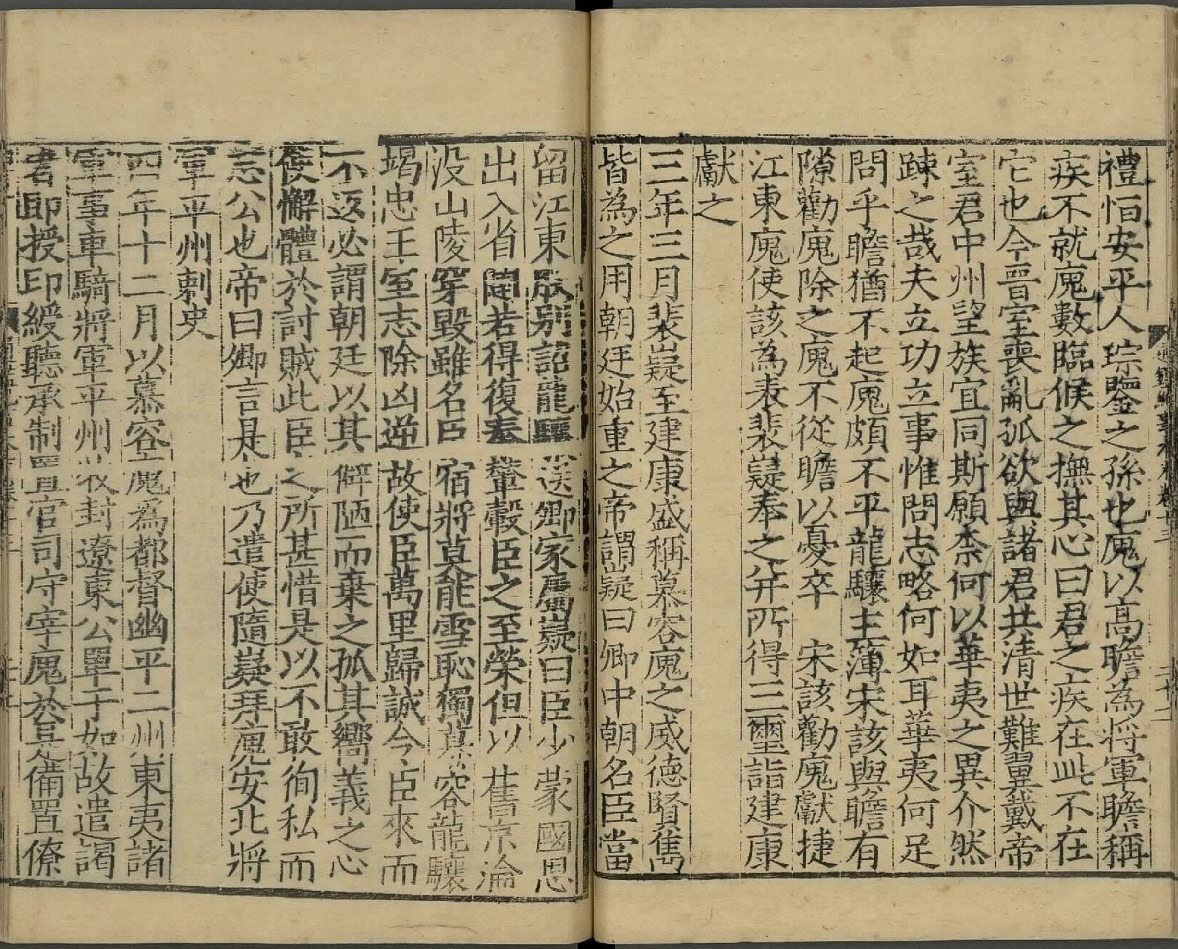 禮恒安平人琮鑒之孫也廆以高瞻為將軍瞻稱
疾不就廆數臨候之撫其心曰君之疾在此不在
它也今晉室喪亂孤欲與諸君共清世難翼戴帝
室君中州望族宜同斯願柰何以華夷之異介然
踈之哉夫立功立事惟問志略何如耳華夷何足
問乎瞻猶不起廆頗不平龍驤主薄宋該與瞻有
隙勸廆除之廆不從瞻以憂卒 宋該勸廆獻捷
江東廆使該為表裴嶷奉之并所得三璽詣建康
獻之
三年三月裴嶷至建康盛稱慕容廆之威德賢雋
皆為之用朝廷始重之帝謂嶷曰卿中朝名臣當
留江東朕别詔龍驤送卿家屬嶷曰臣少蒙國恩
出入省闥若得復奉輦轂臣之至榮但以舊京淪
没山陵穿毀雖名臣宿將莫能雪恥獨慕容龍驤
竭忠王室志除凶逆故使臣萬里歸誠今臣來而
不返必謂朝廷以其僻陋而棄之孤其嚮義之心
使懈體於討賊此臣之所甚惜是以不敢徇私而
忘公也帝曰卿言是也乃遣使隨嶷拜廆安北將
軍平州刺史
四年十二月以慕容廆為都督幽平二州東夷諸
軍事車騎將軍平州牧封遼東公單于如故遣謁
者即授印綬聽承制置官司守宰廆於是備置僚